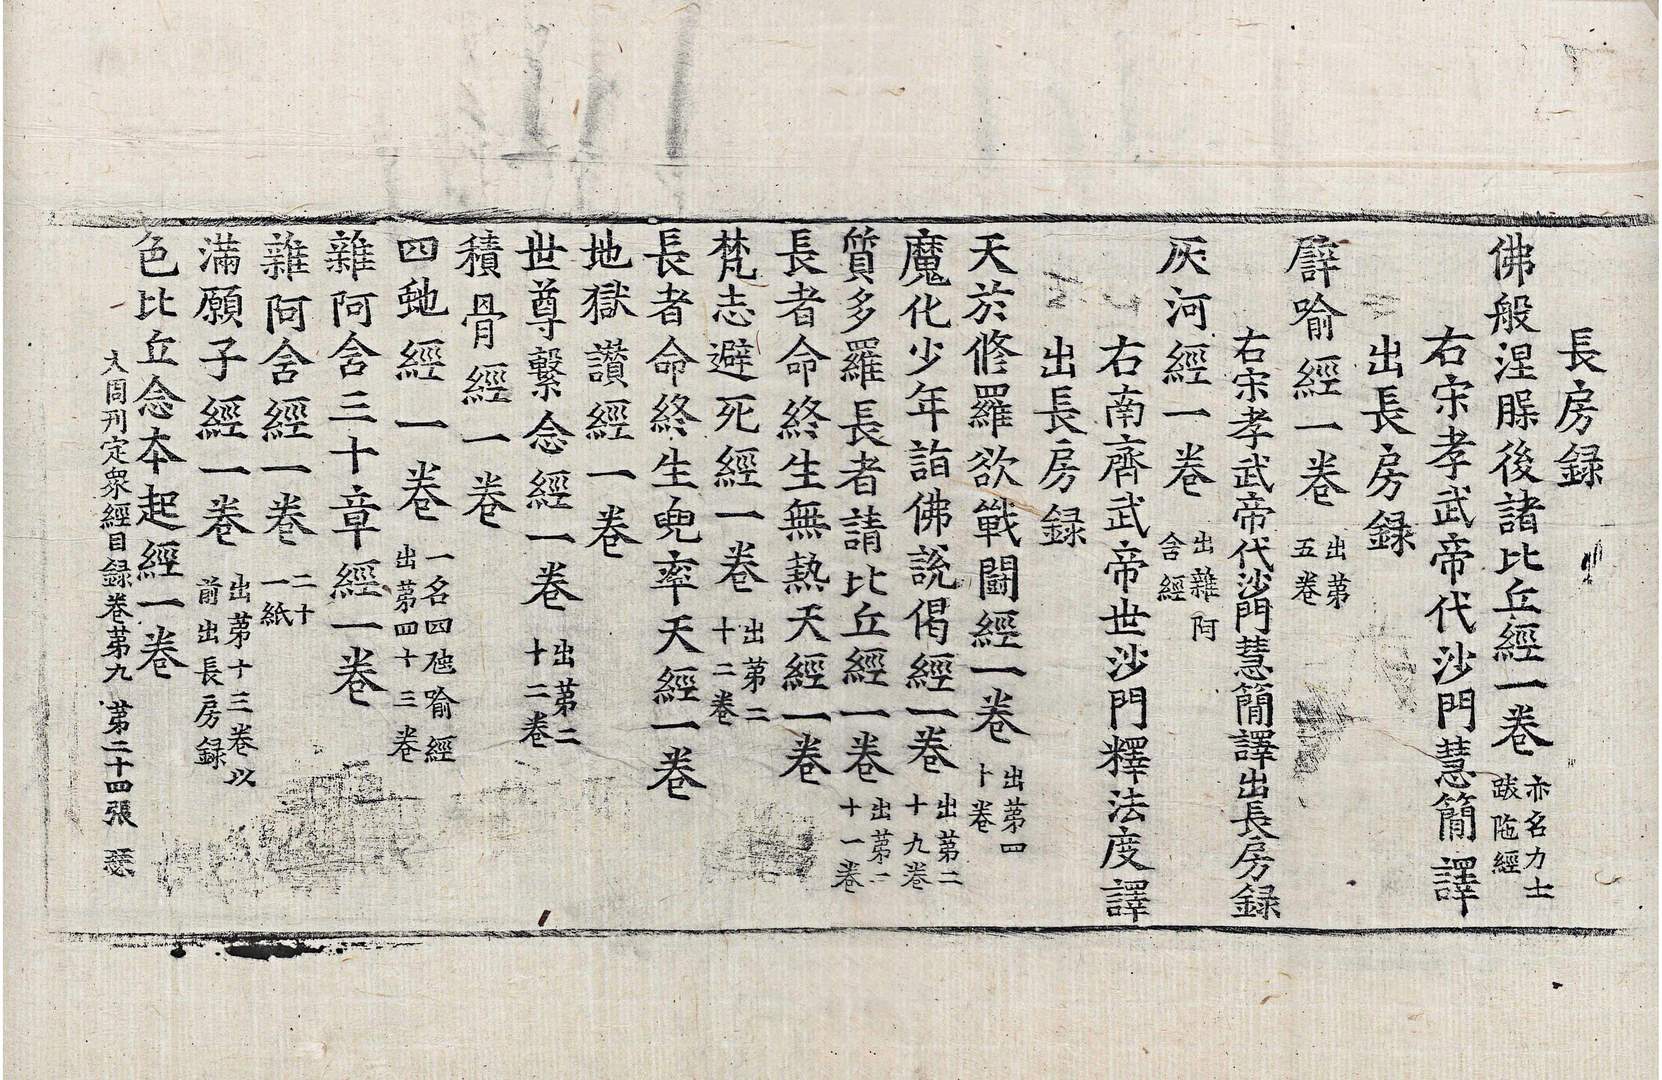 長房録
佛般涅脵後諸比丘經一卷 亦名力士䟦陁經
右宋孝武帝代沙門慧簡譯
出長房録
譬喻經一卷 出第五卷
右宋孝武帝代沙門慧簡譯出長房録
灰河經一卷 出雜阿含經
右南齊武帝世沙門釋法度譯
出長房録
天於脩羅欲戰鬪經一卷 出第四卜卷
魔化少年詣佛說偈經一卷 出第二十九卷
質多羅長者請比丘經一卷 出第二十一卷
長者命終生無熱天經一卷
梵志避死經一卷 出第二十二卷
長者命終生兜率天經一卷
地獄讚經一卷
世尊繫念經一卷 出第二十二卷
積骨經一卷
四虵經一卷 一名四虵喻經出第四十三卷
雜阿含三十章經一卷
雜阿含經一卷 二十一紙
滿願子經一卷 出第十三卷以前出長房録
色比丘念本起經一卷
大周刊定衆經目録卷第九 第二十四張 慤